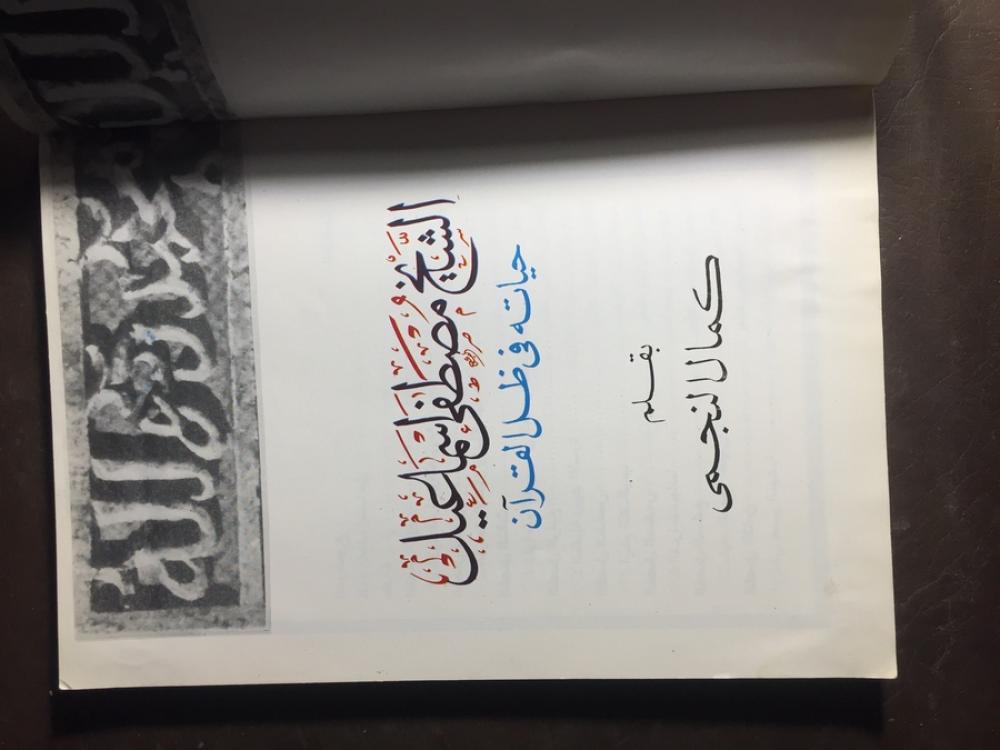 الشيخ مصطفى إسماعيل
حياته فى ظل القرآن
بقلم
كمال النجمى